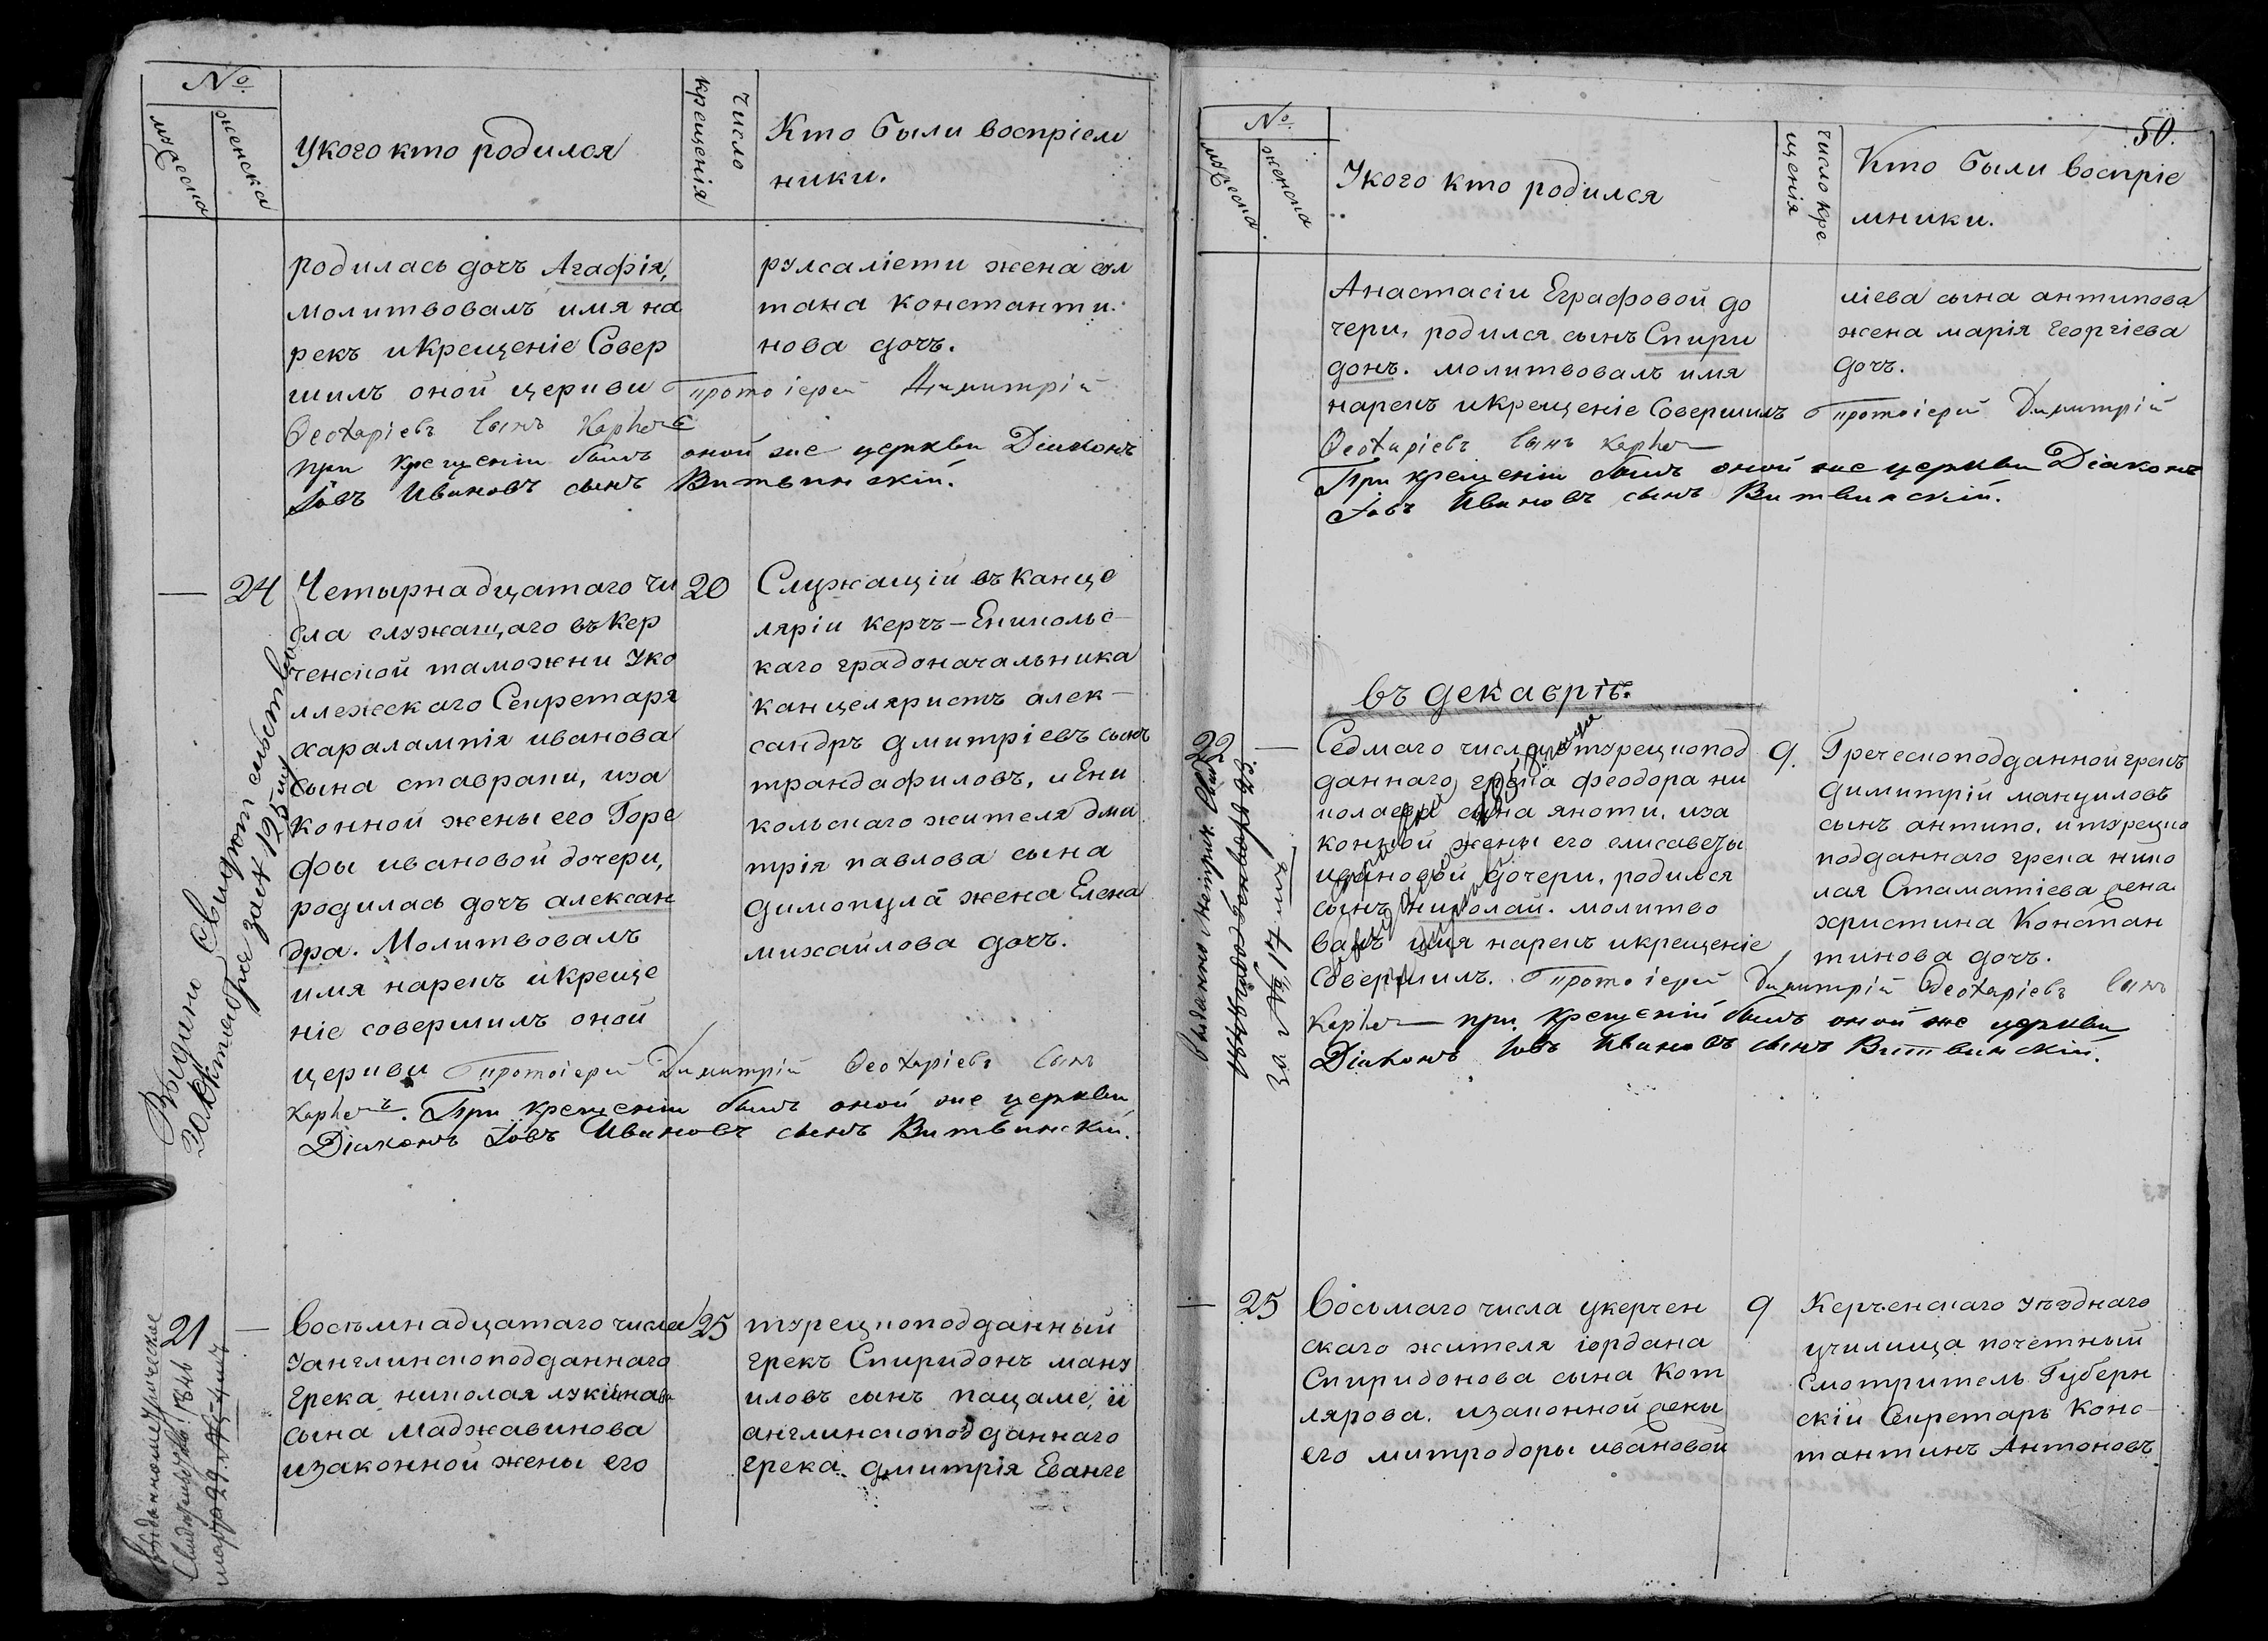 №
мужеска
женска
У кого кто родился
число
крещенія
Кто были воспріем
ники.
родилась дочь Агафія,
молитвовалъ имя на
рекъ и крещеніе Совер
шилъ оной церкви Протоіерей Димитрій
Ѳеохаріевъ сынъ
при крещеніи былъ оной же церкви Діаконъ
Іовъ Ивановъ сынъ Витвинскій.
жена сул
тана константи
нова дочь.
24
Четырнадцатаго чи
сла служащаго въ Кер
ченской таможни у ко
ллежскаго Секретаря
харалампія иванова
сына ставраки, иза
конной жены его Горе
фы ивановой дочери,
родилась дочь алексан
дра. Молитвовалъ
имя нарекъ и креще
ніе совершилъ оной
церкви Протоіерей Димитрій Ѳеохаріевъ сынъ
При крещеніи былъ оной же церкви
Діаконъ Іовъ Ивановъ сынъ Витвинскій.
20
Служащій въ канце
ляріи керчь-Еникольс-
каго градоначальника
канцеляристъ алек-
сандръ дмитріевъ сынъ
трандафиловъ, и Ени
кольскаго жителя дми
трія павлова сына
димопула жена Елена
михайлова дочь.
Выдано Свидѣтельство
30 Октября за № 195
21
восьмнадцатаго числа
у англинскоподданнаго
Грека николая
сына Маджавинова
изаконной жены его
25
турецкоподданный
грекъ Спиридонъ ману
иловъ сынъ пацаме, и
англинскоподданнаго
грека дмитрія Еванге
выданно метрическое
50.
№
мужеска
женска
У кого кто родился
число кре
щенія
Кто были воспріе
мники.
Анастасіи Еграфовой до
чери, родился сынъ Спири
донъ. молитвовалъ имя
нарекъ и крещеніе Совершилъ Протоіерей Димитрій
Ѳеохаріевъ сынъ
При крещеніи былъ оной же церкви Діаконъ
Іовъ Ивановъ сынъ Витвинскій.
ліева сына антипова
жена марія георгіева
дочь.
въ декабрѣ.
22
Седмаго числа у турецкопод
даннаго грека феодора ни
колаева сына яноти, иза
конной жены его елисаветы
ивановой дочери, родился
сынъ николай. молитво
валъ имя нарекъ и крещеніе
Совершилъ. Протоіерей Димитрій Ѳеохаріевъ сынъ
при крещеній былъ оной же церкви
Діаконъ Іовъ Ивановъ сынъ Витвинскій.
9.
Греческоподданной грекъ
димитрій мануиловъ
сынъ антипо, и турецко
подданнаго грека нико
лая Стаматіева жена
христина Констан
тинова дочь.
25
Восьмаго числа у керчен
скаго жителя іордана
Спиридонова сына Кот
лярова, изаконной жены
его митродоры ивановой
9
Керченскаго уѣзднаго
училища почетный
Смотритель Губерн
скій Секретарь Конс-
тантинъ Антоновъ